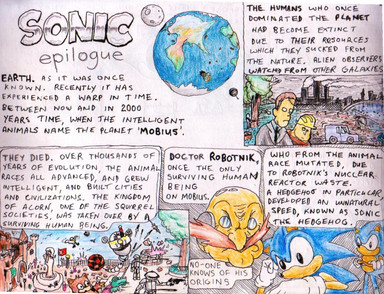 SONIC
epilogue
EARTH. AS IT WAS ONCE
KNOWN. RECENTLY IT HAS
EXPERIENCED A WARP IN TIME.
BETWEEN NOW AND IN 2000
YEARS TIME, WHEN THE INTELLIGENT
ANIMALS NAME THE PLANET 'MOBIUS'.
THE HUMANS WHO ONCE
DOMINATED THE PLANET
HAD BECOME EXTINCT
DUE TO THEIR RESOURCES
WHICH THEY SUCKED FROM
THE NATURE. ALIEN OBSERVERS
WATCHED FROM OTHER GALAXIES
THEY DIED. OVER THOUSANDS OF
YEARS OF EVOLUTION, THE ANIMAL
RACES ALL ADVANCED, AND GREW
INTELLIGENT, AND BUILT CITIES
AND CIVILIZATIONS. THE KINGDOM
OF ACORN, ONE OF THE SQUIRREL
SOCIETIES, WAS TAKEN OVER BY A
SURVIVING HUMAN BEING.
DOCTOR ROBOTNIK,
ONCE THE ONLY
SURVIVING HUMAN
BEING
ON MOBIUS.
NO-ONE
KNOWS OF HIS
ORIGINS
WHO FROM THE ANIMAL
RACE MUTATED, DUE
TO ROBOTNIK'S NUCLEAR
REACTOR WASTE.
A HEDGEHOG IN PARTICULAR,
DEVELOPED AN UNNATURAL
SPEED, KNOWN AS SONIC
THE HEDGEHOG.